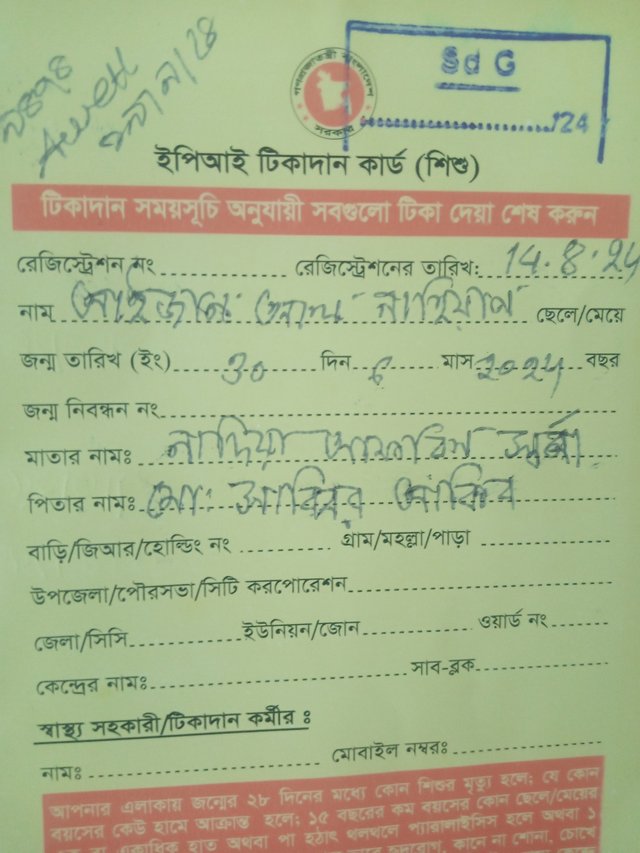 গণপ্রজাতন্ত্রী বাংলাদেশ
সরকার
Sd G
/24
ইপিআই টিকাদান কার্ড (শিশু)
টিকাদান সময়সূচি অনুযায়ী সবগুলো টিকা দেয়া শেষ করুন
রেজিস্ট্রেশন নং .............. রেজিস্ট্রেশনের তারিখ: 14.8.24
নাম আইজান নাহিয়ান ছেলে/মেয়ে
জন্ম তারিখ (ইং) 30 দিন 6 মাস 2024 বছর
জন্ম নিবন্ধন নং
মাতার নামঃ নাদিয়া আফরিন
পিতার নামঃ মোঃ সাব্বির আকিব
বাড়ি/জিআর/হোল্ডিং নং .......... গ্রাম/মহল্লা/পাড়া ..............
উপজেলা/পৌরসভা/সিটি করপোরেশন
জেলা/সিসি.............. ইউনিয়ন/জোন.............. ওয়ার্ড নং ........
কেন্দ্রের নামঃ.............. সাব-ব্লক..............
স্বাস্থ্য সহকারী/টিকাদান কর্মীর ঃ
নামঃ .............. মোবাইল নম্বরঃ..............
আপনার এলাকায় জন্মের ২৮ দিনের মধ্যে কোন শিশুর মৃত্যু হলে; যে কোন
বয়সের কেউ হামে আক্রান্ত হলে; ১৫ বছরের কম বয়সের কোন ছেলে/মেয়ের
একাধিক হাত অথবা পা হঠাৎ থলথলে প্যারালাইসিস হলে অথবা ১
হৃদরোগ, কানে না শোনা, চোখে